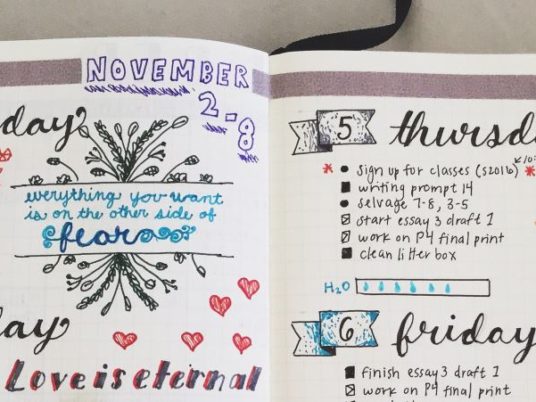 NOVEMBER
2-8
day
everything you want
is on the other side of
fear
day
Love is eternal
5 thursd
sign up for classes (s2016)
writing prompt 14
selvage 7-8, 3-5
start essay 3 draft 1
work on P4 final print
clean litter box
H2O
6 friday
finish essay 3 draft 1
work on P4 final print